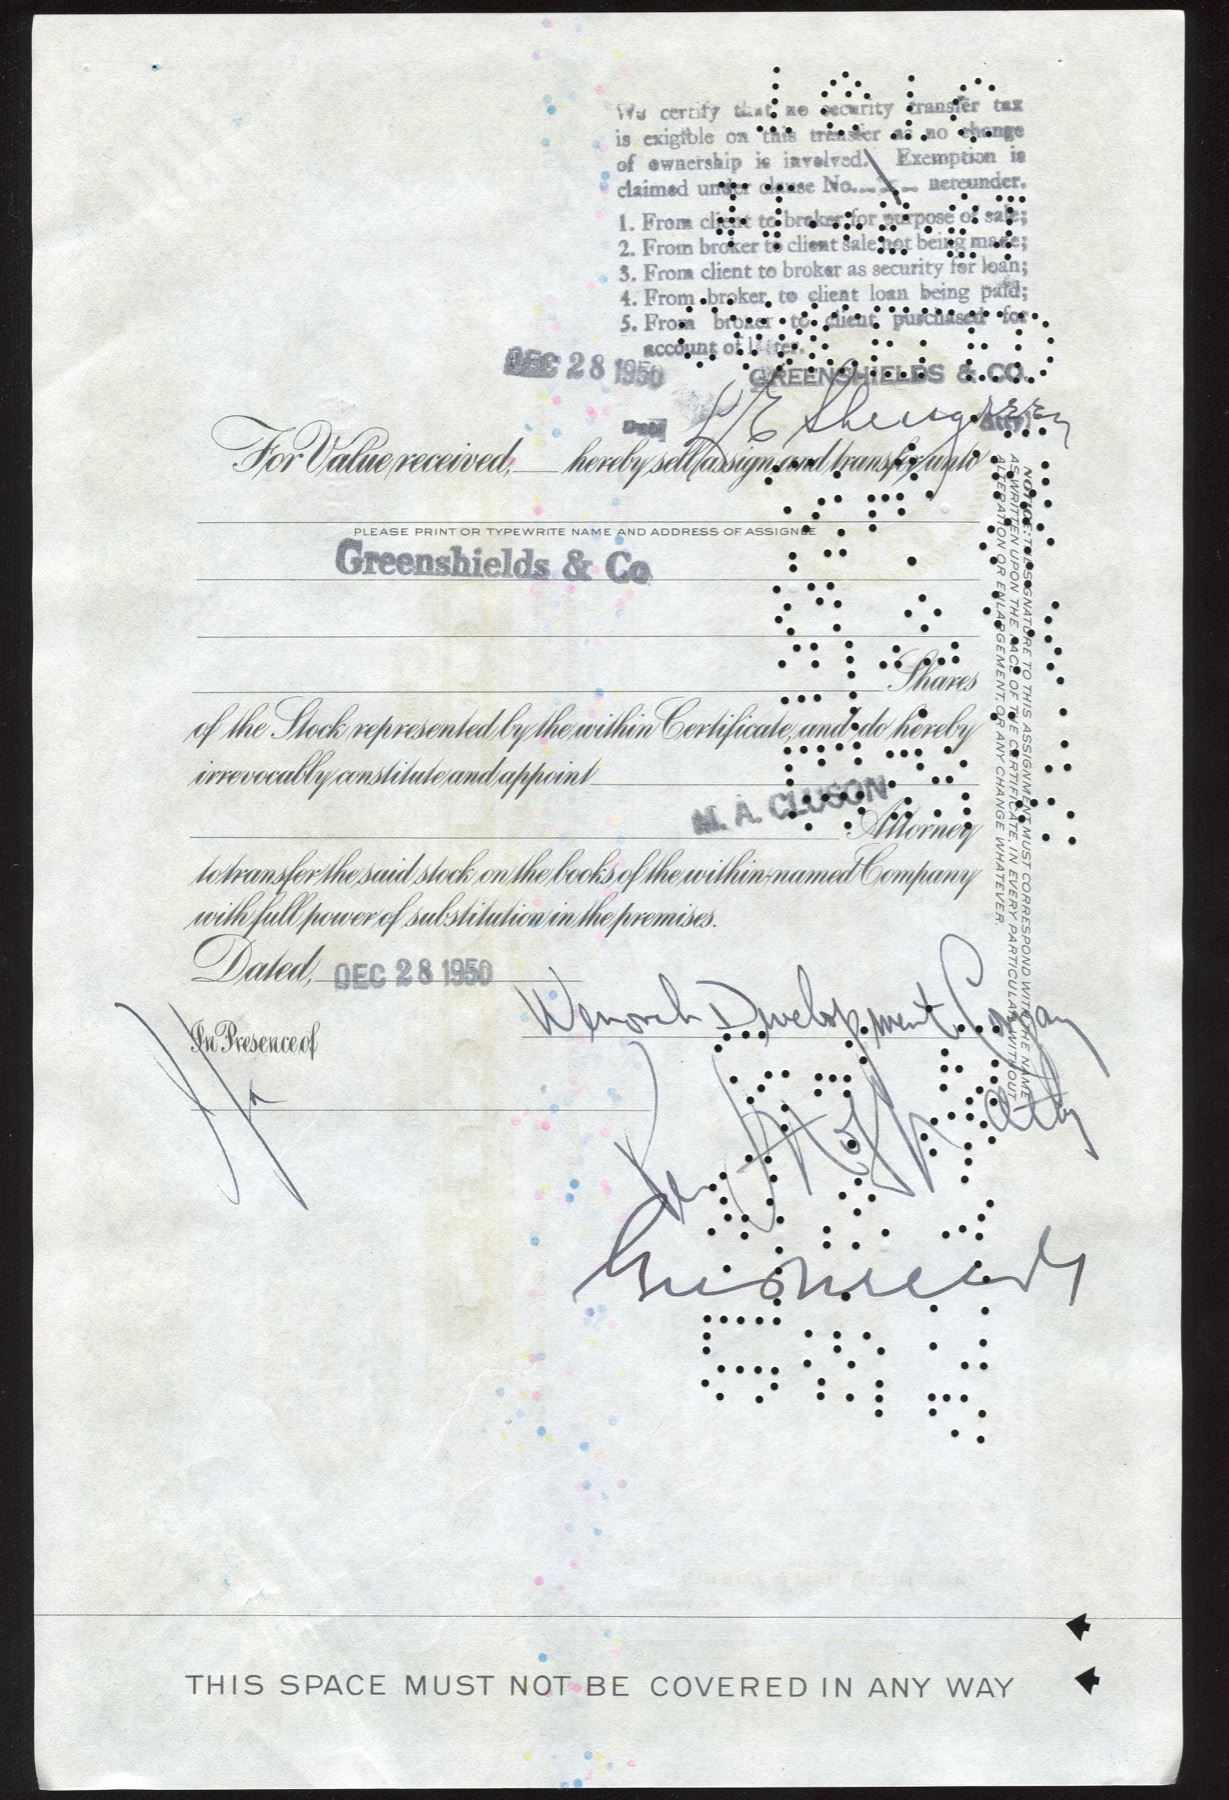 We certify that no security transfer tax
is exigible on this transfer as no change
of ownership is involved. Exemption is
claimed under clause No. hereunder.
1. From client to broker for purpose of sale;
2. From broker to client sale not being made;
3. From client to broker as security for loan;
4. From broker to client loan being paid;
5. From broker to client purchased for
account of latter.
DEC 28 1950 GREENSHIELDS & CO.
For Value received, hereby sell, assign and transfer unto
PLEASE PRINT OR TYPEWRITE NAME AND ADDRESS OF ASSIGNEE
Greenshields & Co
Shares
of the Stock represented by the within Certificate, and do hereby
irrevocably constitute and appoint
M. A. CLUSON
Attorney
to transfer the said stock on the books of the within-named Company
with full power of substitution in the premises.
Dated, DEC 28 1950
Development Company
In Presence of
Atty
NOTICE: THE SIGNATURE TO THIS ASSIGNMENT MUST CORRESPOND WITH THE NAME
AS WRITTEN UPON THE FACE OF THE CERTIFICATE, IN EVERY PARTICULAR, WITHOUT
ALTERATION OR ENLARGEMENT, OR ANY CHANGE WHATEVER.
THIS SPACE MUST NOT BE COVERED IN ANY WAY